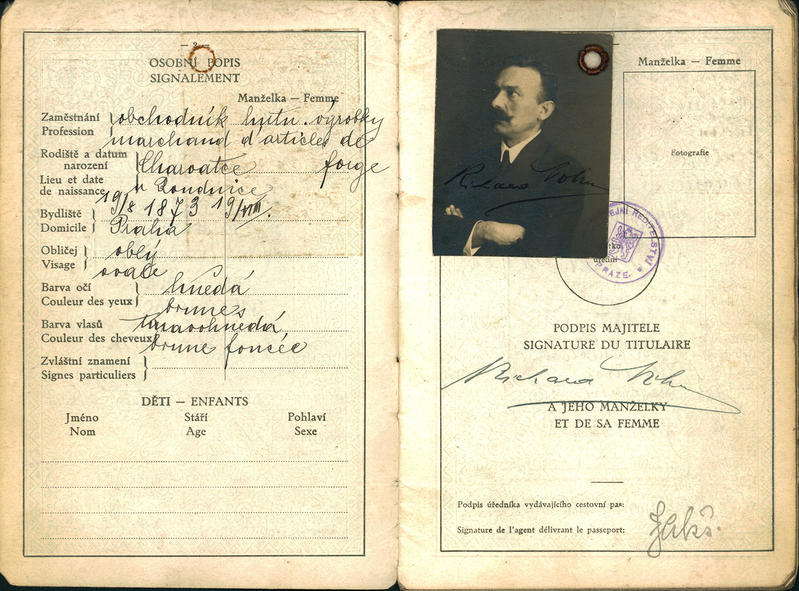 OSOBNÍ POPIS
SIGNALEMENT
Manželka — Femme
Zaměstnání
Profession
obchodník hutn. výrobky
marchand d'articles de
forge
Rodiště a datum
narození
Lieu et date
de naissance
Charvatce
u Roudnice
19/8 1873 19/VIII.
Bydliště
Domicile
Praha
Obličej
Visage
oblý
ovale
Barva očí
Couleur des yeux
hnědá
brunes
Barva vlasů
Couleur des cheveux
tmavohnědá
brune foncée
Zvláštní znamení
Signes particuliers
DĚTI — ENFANTS
Jméno Stáří Pohlaví
Nom Age Sexe
Manželka — Femme
Fotografie
Richard
ŘEDITELSTVÍ
PRAZE
úřední
PODPIS MAJITELE
SIGNATURE DU TITULAIRE
Richard
A JEHO MANŽELKY
ET DE SA FEMME
Podpis úředníka vydávajícího cestovní pas:
Signature de l'agent délivrant le passeport: